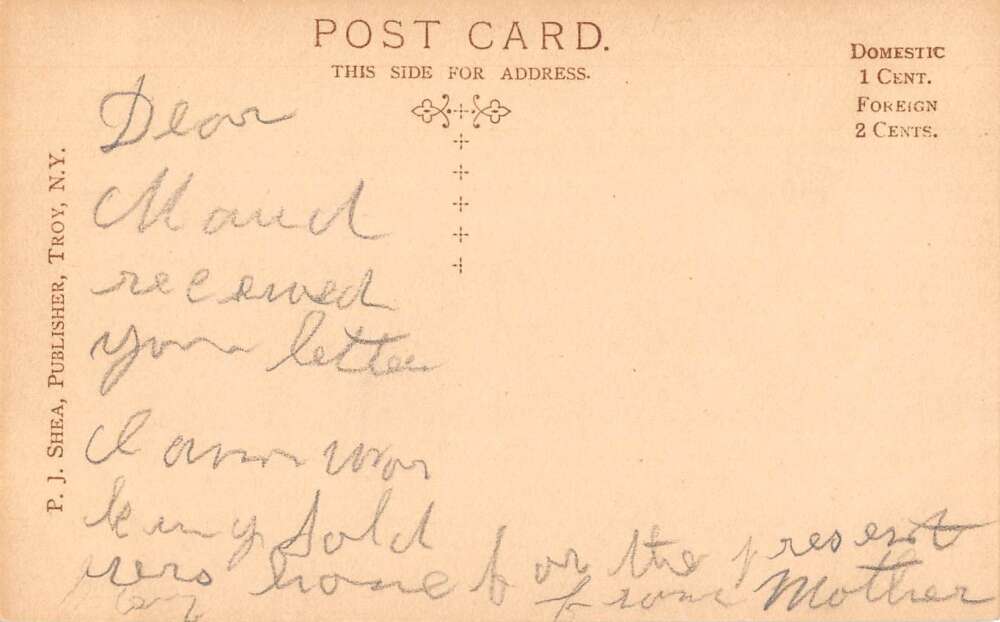 POST CARD.
THIS SIDE FOR ADDRESS.
DOMESTIC
1 CENT.
FOREIGN
2 CENTS.
P. J. SHEA, PUBLISHER, TROY, N.Y.
Dear
Maud
received
your letter
I am wor
king Sold
iers home for the present
from Mother